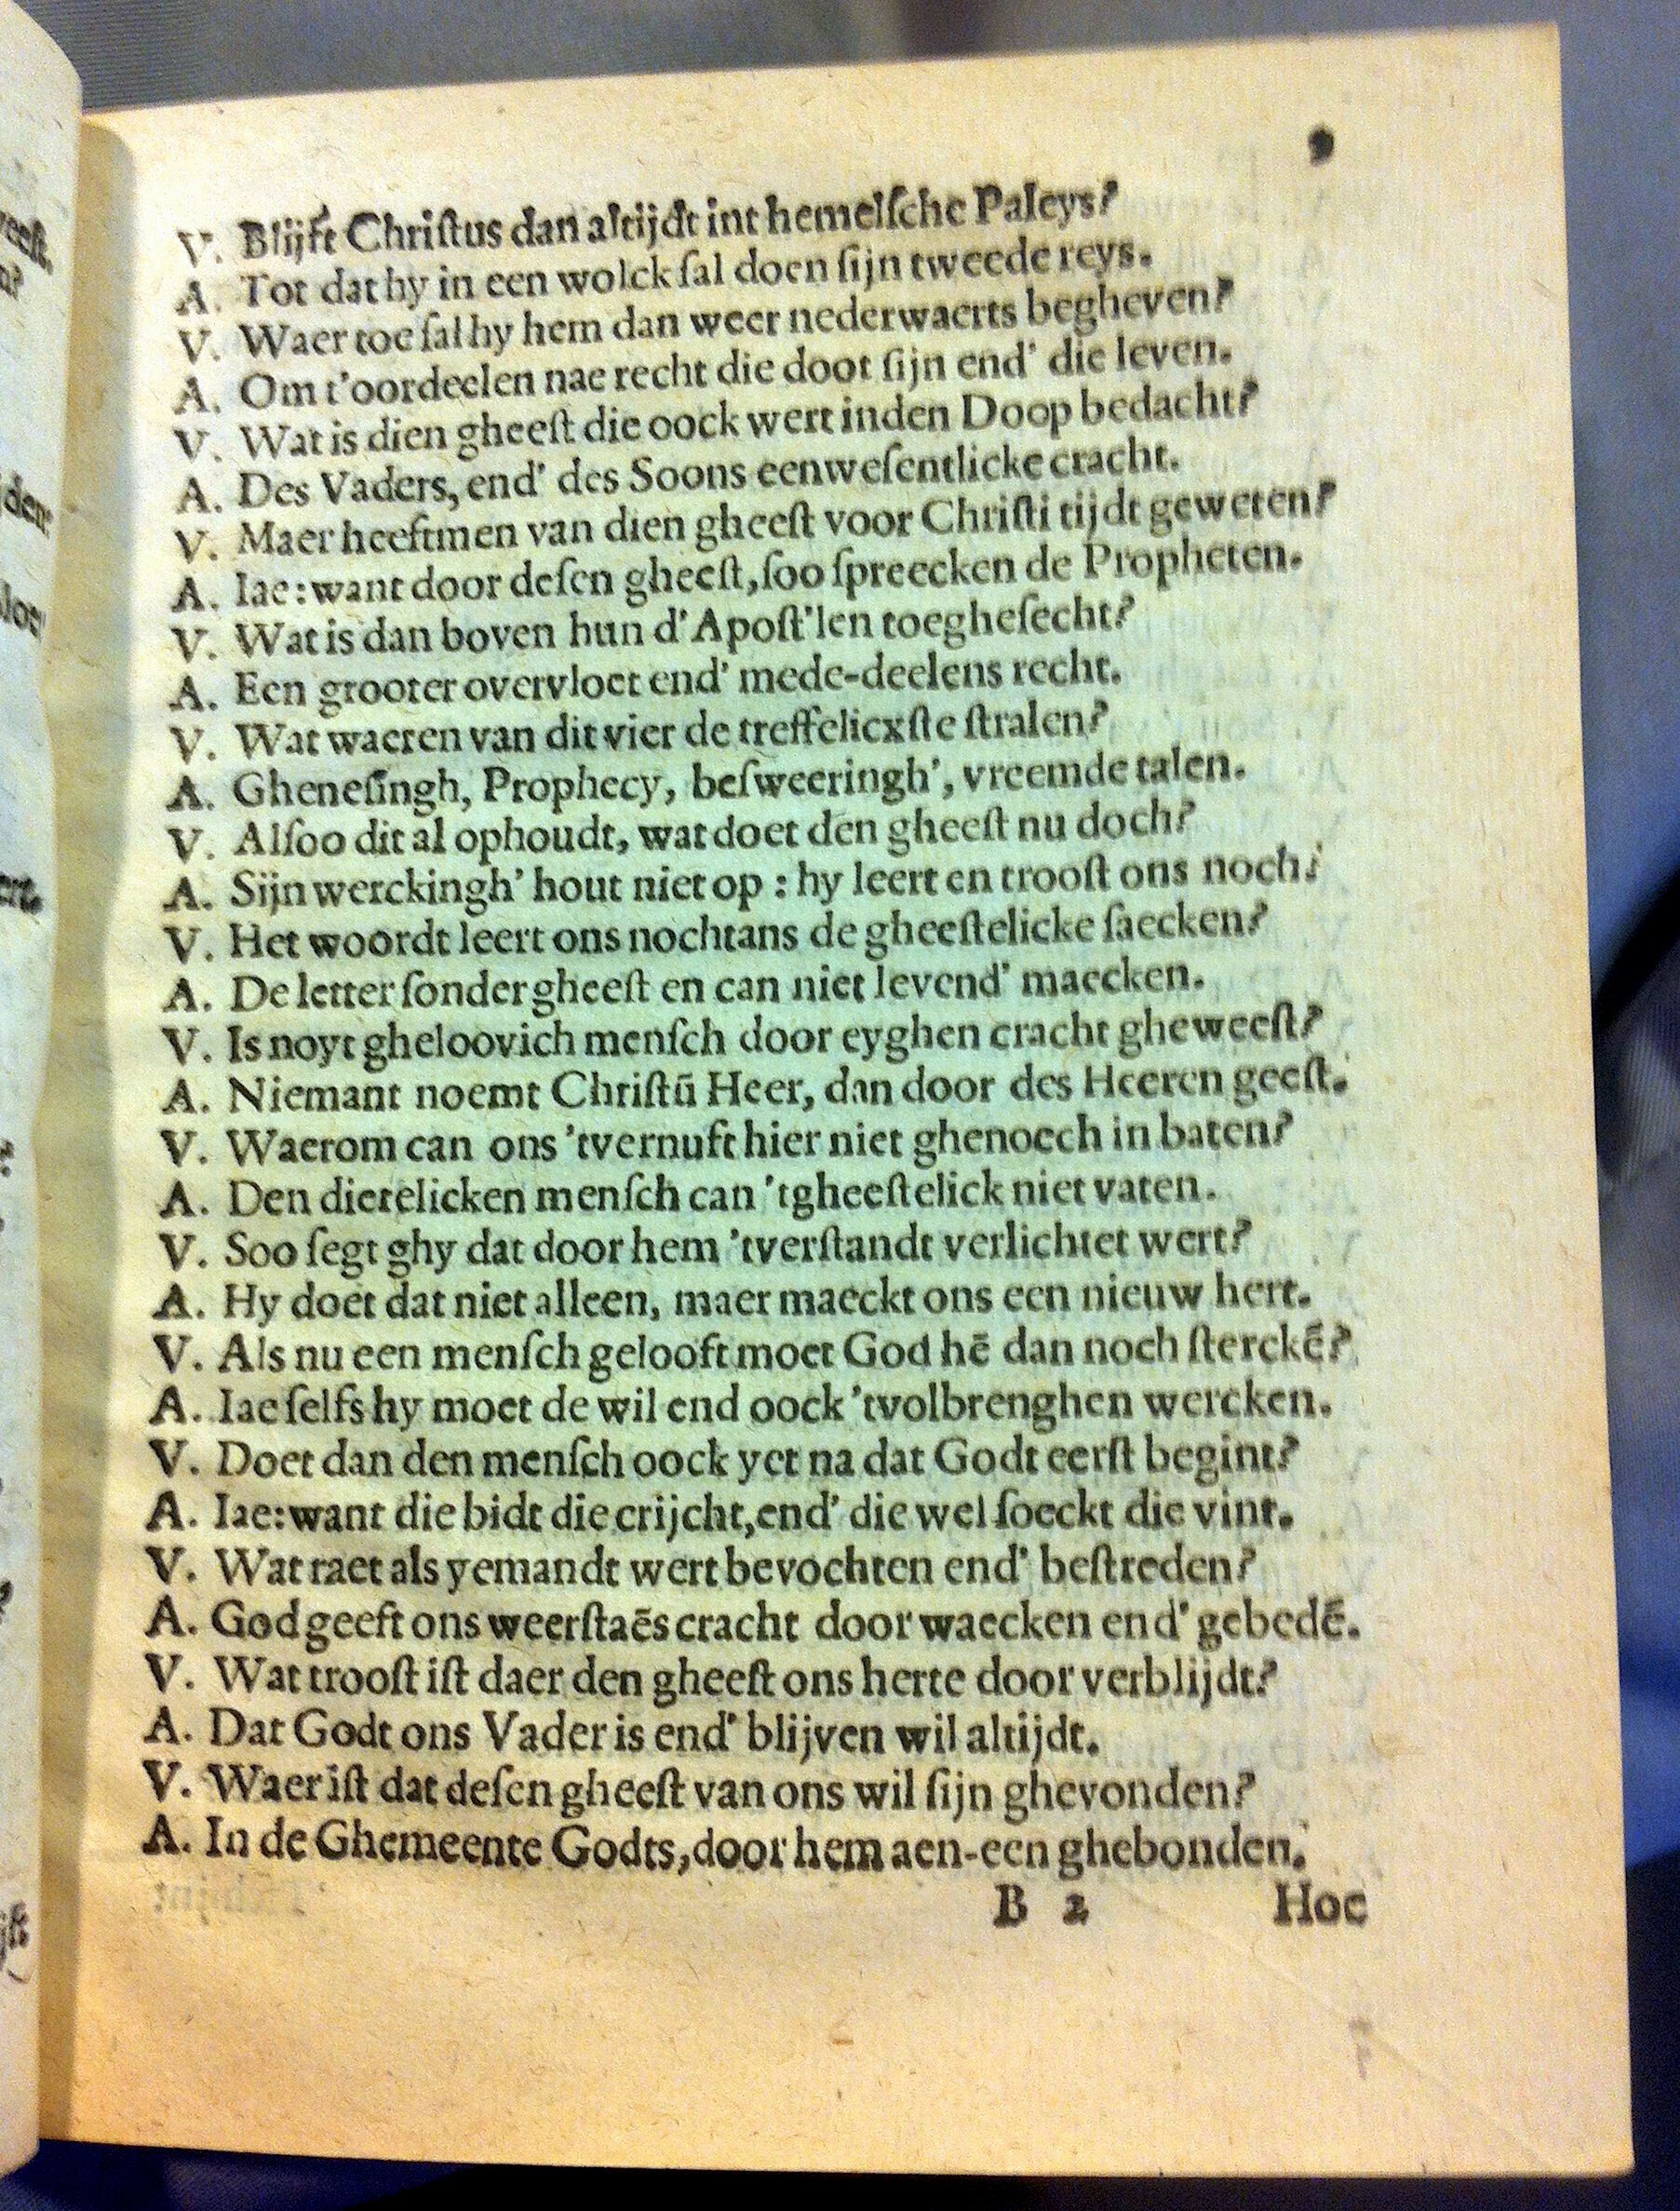 9
V. Blijft Chriſtus dan altijdt int hemelſche Paleys?
A. Tot dat hy in een wolck ſal doen ſijn tweede reys.
V. Waer toe ſal hy hem dan weer nederwaerts begheven?
A. Om t'oordeelen nae recht die doot ſijn end' die leven.
V. Wat is dien gheeſt die oock wert inden Doop bedacht?
A. Des Vaders, end' des Soons eenweſentlicke cracht.
V. Maer heeftmen van dien gheeſt voor Chriſti tijdt geweten?
A. Iae: want door deſen gheeſt, ſoo ſpreecken de Propheten.
V. Wat is dan boven hun d'Apoſt'len toegheſecht?
A. Een grooter overvloet end' mede-deelens recht.
V. Wat waeren van dit vier de treffelicxſte ſtralen?
A. Gheneſingh, Prophecy, beſweeringh', vreemde talen.
V. Alſoo dit al ophoudt, wat doet den gheeſt nu doch?
A. Sijn werckingh' hout niet op : hy leert en trooſt ons noch.
V. Het woordt leert ons nochtans de gheeſtelicke ſaecken?
A. De letter ſonder gheeſt en can niet levend' maecken.
V. Is noyt gheloovich menſch door eyghen cracht gheweeſt?
A. Niemant noemt Chriſtū Heer, dan door des Heeren geeſt.
V. Waerom can ons 'tvernuft hier niet ghenoech in baten?
A. Den dierelicken menſch can 'tgheeſtelick niet vaten.
V. Soo ſegt ghy dat door hem 'tverſtandt verlichtet wert?
A. Hy doet dat niet alleen, maer maeckt ons een nieuw hert.
V. Als nu een menſch gelooft moet God hē dan noch ſterckē?
A. Iae ſelfs hy moet de wil end oock 'tvolbrenghen wercken.
V. Doet dan den menſch oock yet na dat Godt eerſt begint?
A. Iae: want die bidt die crijcht, end' die wel ſoeckt die vint.
V. Wat raet als yemandt wert bevochten end' beſtreden?
A. God geeft ons weerſtaēs cracht door waecken end' gebedē.
V. Wat trooſt iſt daer den gheeſt ons herte door verblijdt?
A. Dat Godt ons Vader is end' blijven wil altijdt.
V. Waer iſt dat deſen gheeſt van ons wil ſijn ghevonden?
A. In de Ghemeente Godts, door hem aen-een ghebonden.
B 2 Hoe